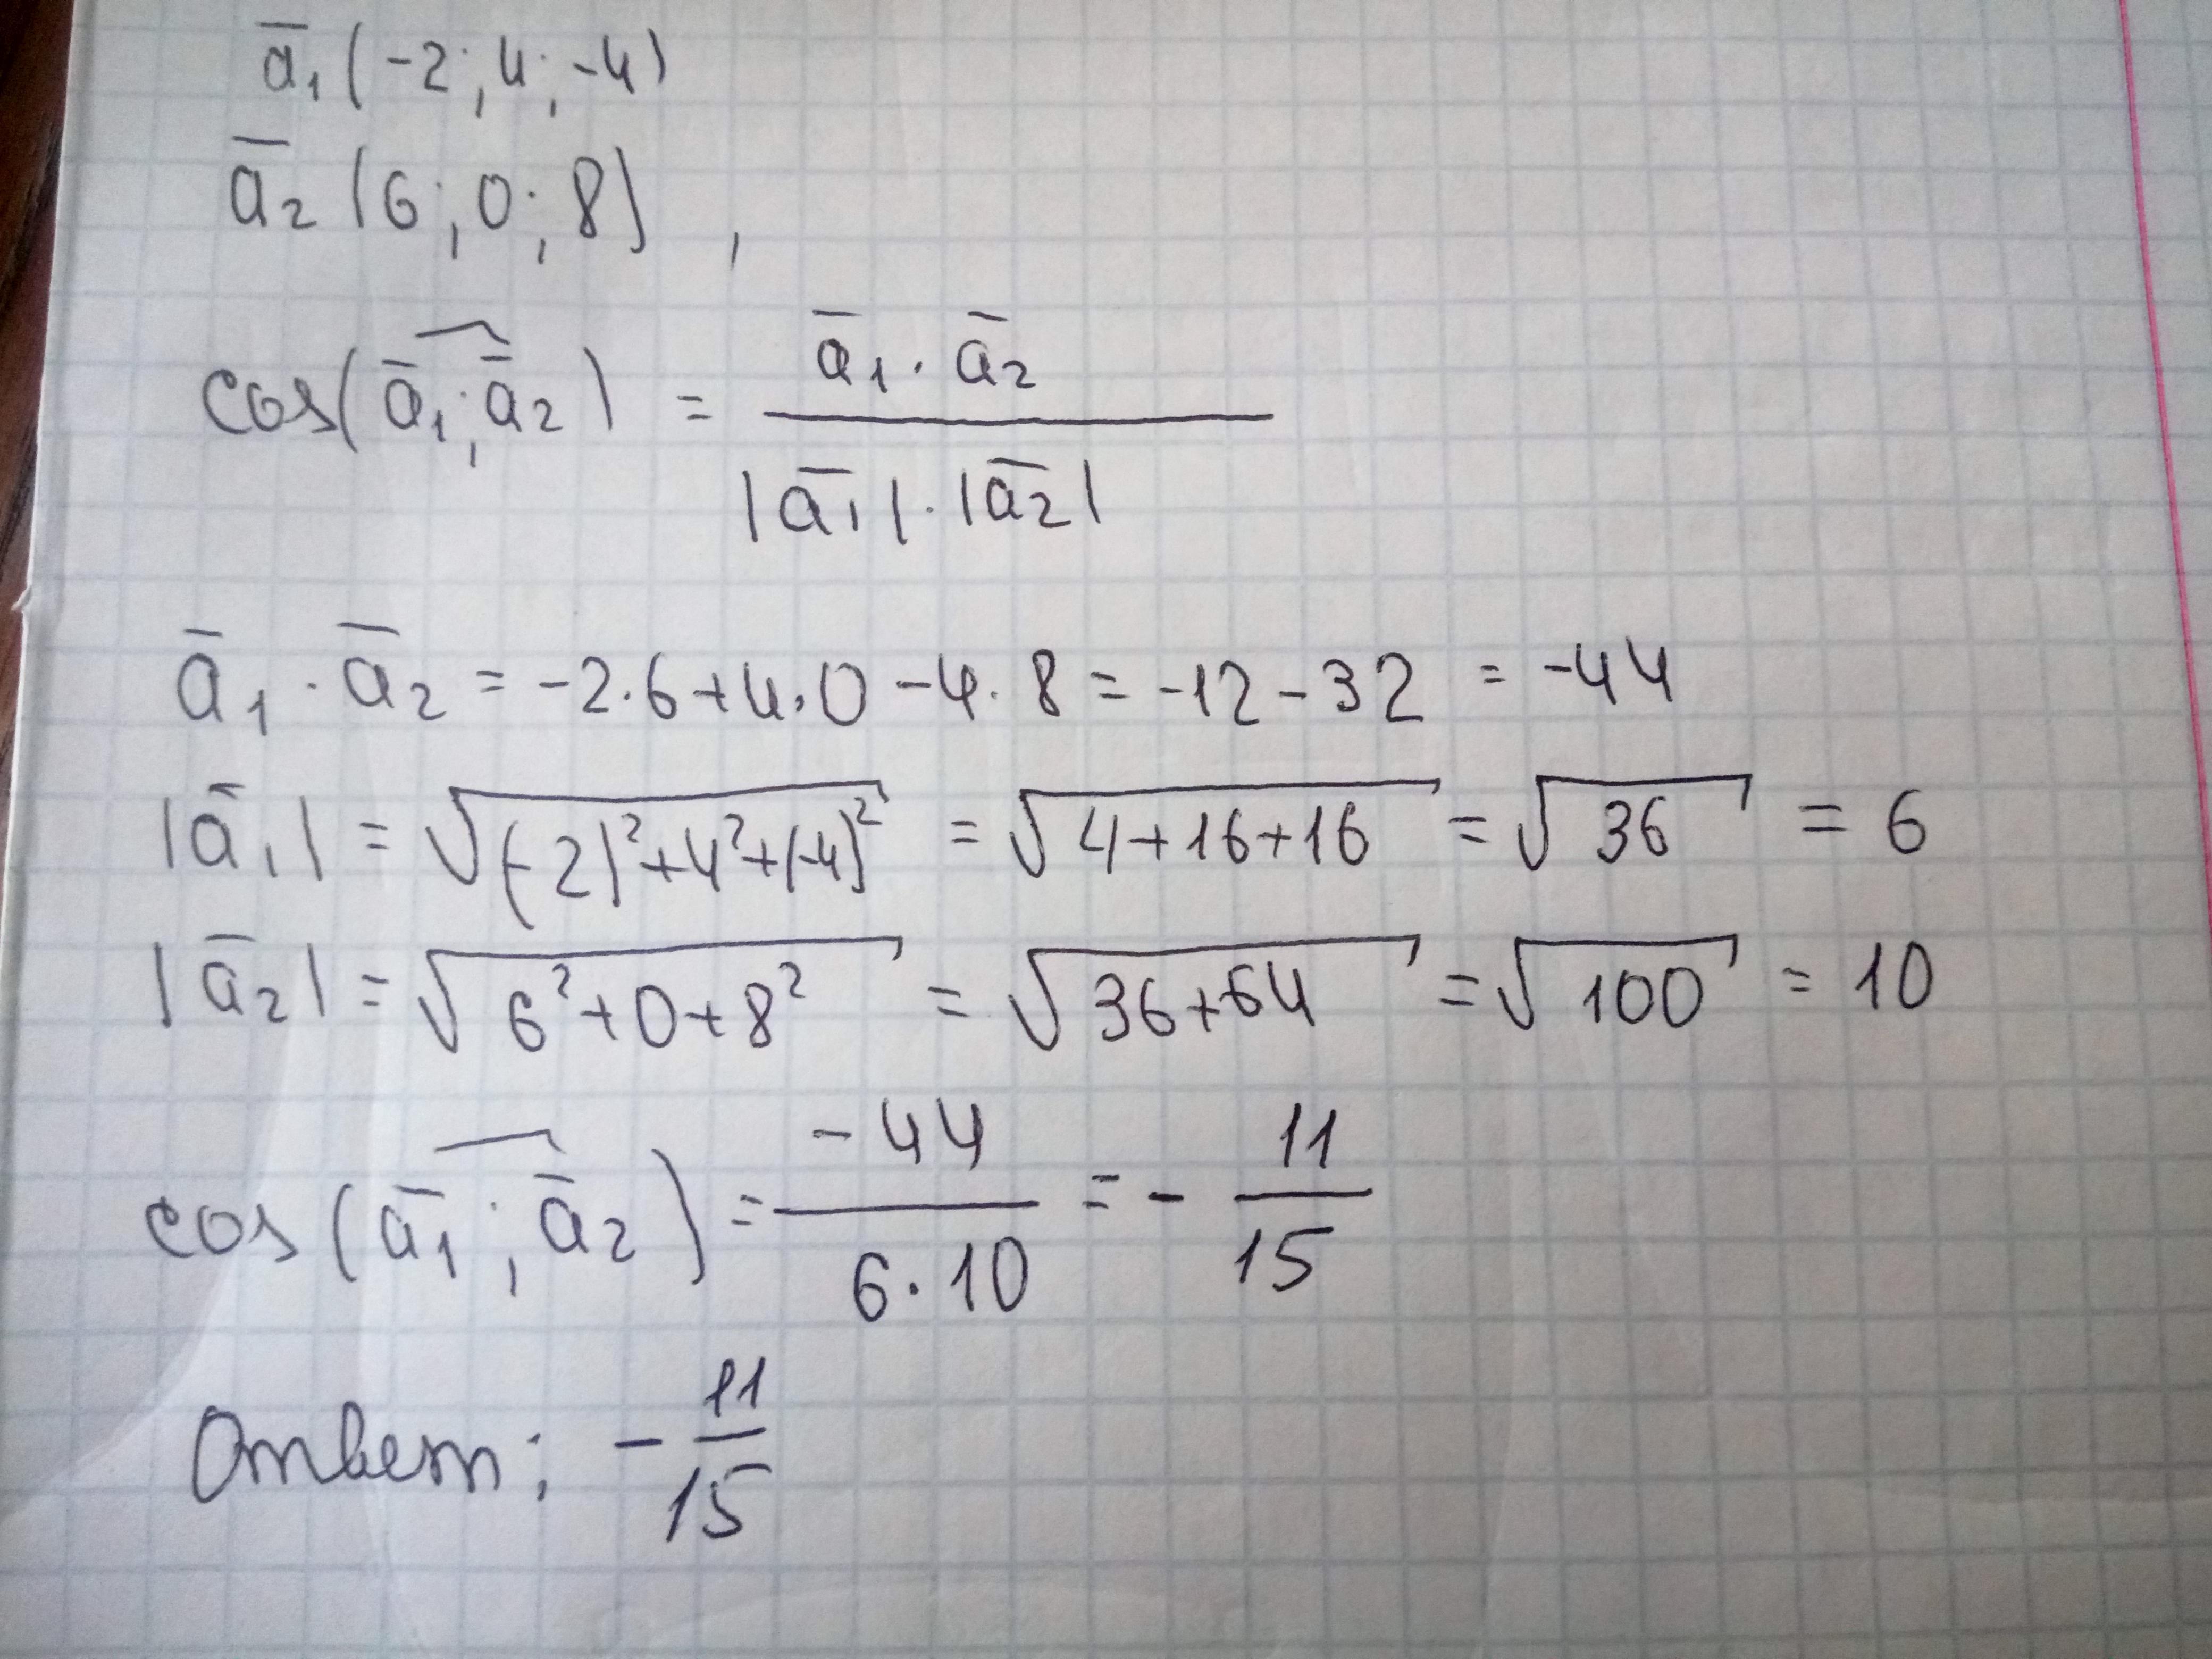 a̅₁(-2; 4; -4)
a̅₂(6; 0; 8)
,
cos(a̅₁; a̅₂) = a̅₁ · a̅₂ / |a̅₁| · |a̅₂|
a̅₁ · a̅₂ = -2·6+4·0-4·8 = -12-32 = -44
|a̅₁| = √((-2)²+4²+(-4)²) = √(4+16+16) = √36 = 6
|a̅₂| = √(6²+0+8²) = √(36+64) = √100 = 10
cos(a̅₁; a̅₂) = -44 / 6·10 = - 11/15
Ответ: - 11/15